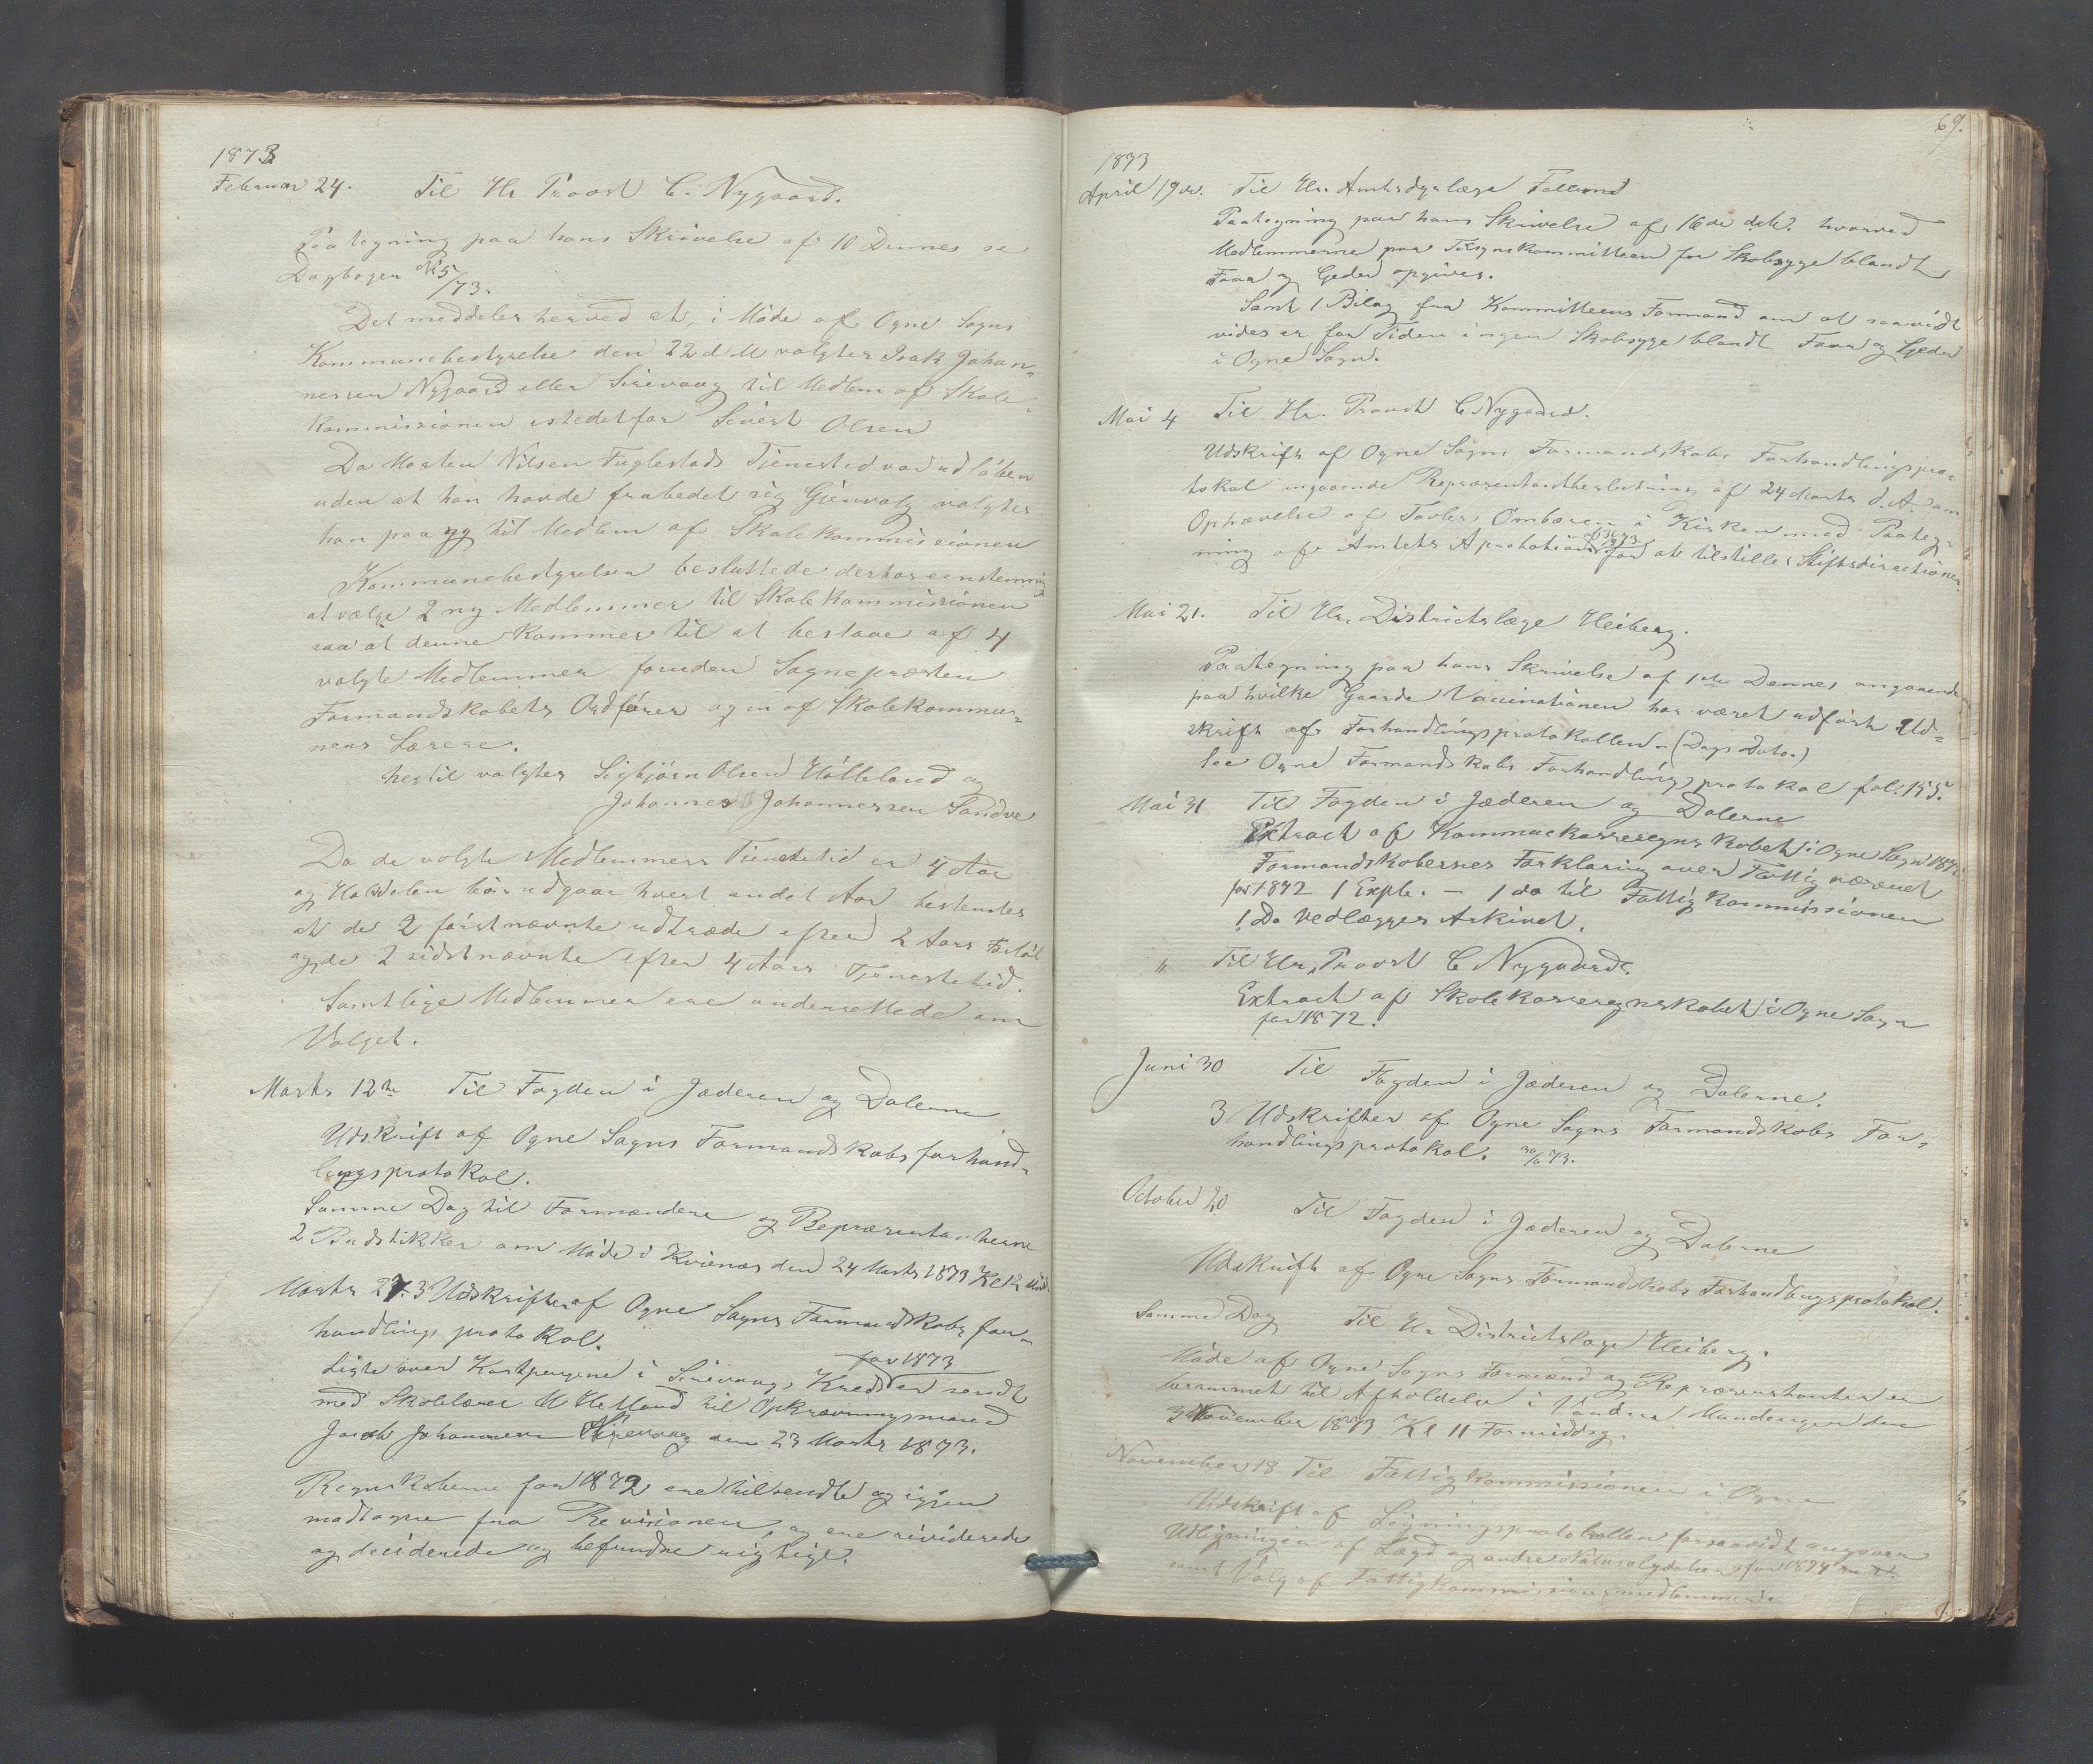 1873
Februar 24. Til Hr Provst C. Nygaard.
Paategning paa hans Skrivelse af 10 Dennes se
Dagbogen No 5/73.
Det meddeles herved at, i Møde af Ogne Sogns
Kommunebestyrelse den 22 d M valgtes Isak Johan-
nessen Nygaard eller Sirevaag til Medlem af Skole-
kommissionen istedetfor Sivert Olsen
Da Morten Nilsen Fuglestads Tjenestid var udløben
uden at han havde frabedet sig Gjenvalg valgtes
han paa ny til Medlem af Skolekommissionen
Kommunebestyrelsen besluttede derhos eenstemmig
at vælge 2 ny Medlemmer til Skolekommissionen
saa at denne kommer til at bestaae af 4
valgte Medlemmer foruden Sognepræsten
Formandskabets Ordfører og en af Skolekommu-
nens Lærere.
hertil valgtes Sigbjørn Olsen Hølleland og
Johannes Johannessen Sandve
Da de valgte Medlemmers Tienestetid er 4 Aar
og Halvdelen bør udgaae hvert andet Aar bestemtes
at de 2 førstnævnte udtræde efter 2 Aars Forløb
og de 2 sidstnævnte efter 4 Aars Tjenestetid.
Samtlige Medlemmer ere underrettede om
Valget.
Marts 12te Til Fogden i Jæderen og Dalerne
Udskrift af Ogne Sogns Formandskabs forhand-
lingsprotokol.
Samme Dag til Formændene og Repræsentanterne
2 Budstikker om Møde i Kvienas den 24 Marts 1873 Kl 12 Mid
Marts 27. 3 Udskrifter af Ogne Sogns Formandskabs for-
handlings protokol.
Liste over Kostpengene i Sirevaags Kreds for 1873 er sendt
med Skolelærer M Hetland til Opkrævningsmand
Jacob Johannesen Sirevaag den 23 Marts 1873.
Regnskaberne for 1872 ere tilsendte og igjen
modtagne fra Revisionen, og ere reviderede
og deciderede og befundne rigtige.
69.
1873
April 19de. Til Hr Amtsdyrlæge Falland
Paategning paa hans Skrivelse af 16de dets. hvorved
Medlemmerne paa Tilsynskommitteen for Skabsyge blandt
Faar og Geder opgives.
Samt 1 Bilag fra Kommitteens Formand om at saavidt
vides er for Tiden ingen Skabsyge blandt Faar og Geder
i Ogne Sogn.
Mai 4 Til Hr. Provst C Nygaard.
Udskrift af Ogne Sogns Formandskabs Forhandlingspro-
tokol angaaende Repræsentantbeslutning af 24 Marts d. A. om
Ophævelse af Tavles Ombæren i Kirken med Paateg-
ning af Amtets Aprobation for at tilstilles Stiftsdirectionen
Mai 21. Til Hr. Districtslæge Heiberg.
Paategning paa hans Skrivelse af 1ste Dennes angaaende
paa hvilke Gaarde Vaccinationen har været udført Ud-
skrift af Forhandlingsprotokollen - (Dags Dato.)
see Ogne Formandskabs Forhandlingsprotokol fol. 155.
Mai 31 Til Fogden i Jæderen og Dalerne
Extract af Kommunekasseregnskabet i Ogne Sogn 1872
Formandskabernes Forklaring over Fattigvæsenet
for 1872 1 Expl. - 1 do til Fattigkommissionen
1 Do vedlægges Arkivet.
" Til Hr. Provst C Nygaard.
Extract af Skolekasseregnskabet i Ogne Sogn
for 1872.
Juni 30 Til Fogden i Jæderen og Dalerne.
3 Udskrifter af Ogne Sogns Formandskabs For-
handlingsprotokol. 30/6 73.
October 20 Til Fogden i Jæderen og Dalerne
Udskrift af Ogne Sogns Formandskabs Forhandlingsprotokol.
Samme Dag Til Hr Districtslæge Heiberg.
Møde af Ogne Sogns Formænd og Repræsentanter er
berammet til Afholdelse i Mandagen den
3 November 1873 Kl 11 Formiddag.
November 18 Til Fattigkommissionen i Ogne
Udskrift af Ligningsprotokollen forsaavidt angaaer
Udligningen af Lægd og andre Naturalydelser for 1874
samt Valg af Fattigkommissionsmedlemmer.